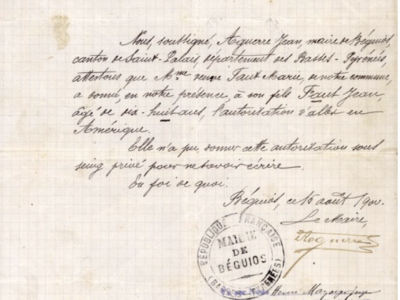 Nous, soussigné, Aguerre Jean, maire de Béguios,
canton de Saint-Palais, département des Basses-Pyrénées,
attestons que Mme veuve Faut Marie, de notre commune,
a donné, en notre présence à son fils Faut Jean,
âgé de dix-huit ans, l'autorisation d'aller en
Amérique.
Elle n'a pu donner cette autorisation sous
seing privé pour ne savoir écrire.
En foi de quoi.
Béguios, ce 15 août 190
Le Maire,
RÉPUBLIQUE FRANÇAISE
MAIRIE
DE
BÉGUIOS